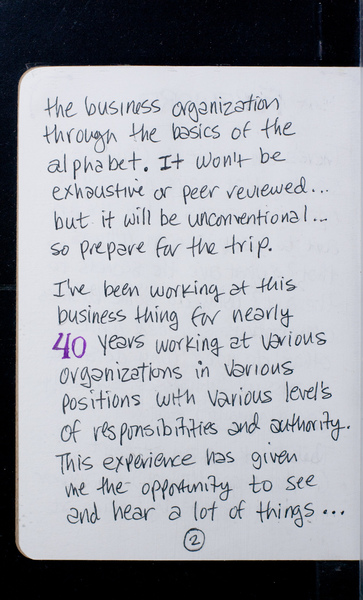 the business organization
through the basics of the
alphabet. It won't be
exhaustive or peer reviewed...
but it will be unconventional...
so prepare for the trip.
I've been working at this
business thing for nearly
40 years working at various
organizations in various
positions with various level's
of responsibilities and authority.
This experience has given
me the opportunity to see
and hear a lot of things...
2